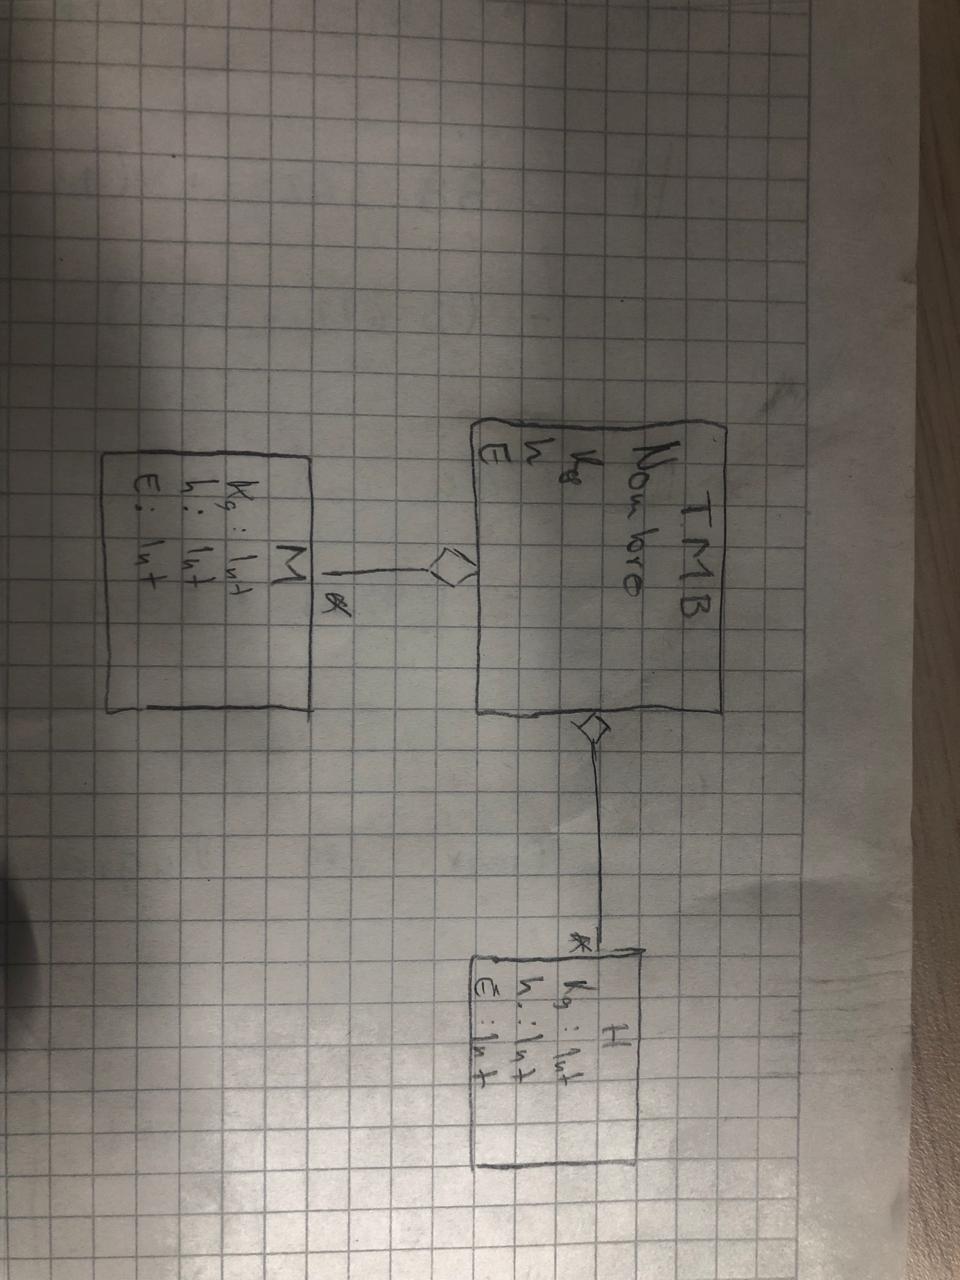 TMB
Nombre
Kg
h
E
*
H
Kg : Int
h : Int
E : Int
*
M
Kg : Int
h : Int
E : Int